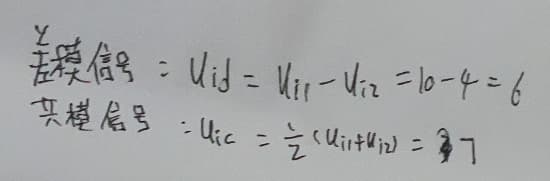 差模信号:Uid = Ui1 - Ui2 = 10 - 4 = 6
共模信号:Uic = 1/2 (Ui1+Ui2) = 7